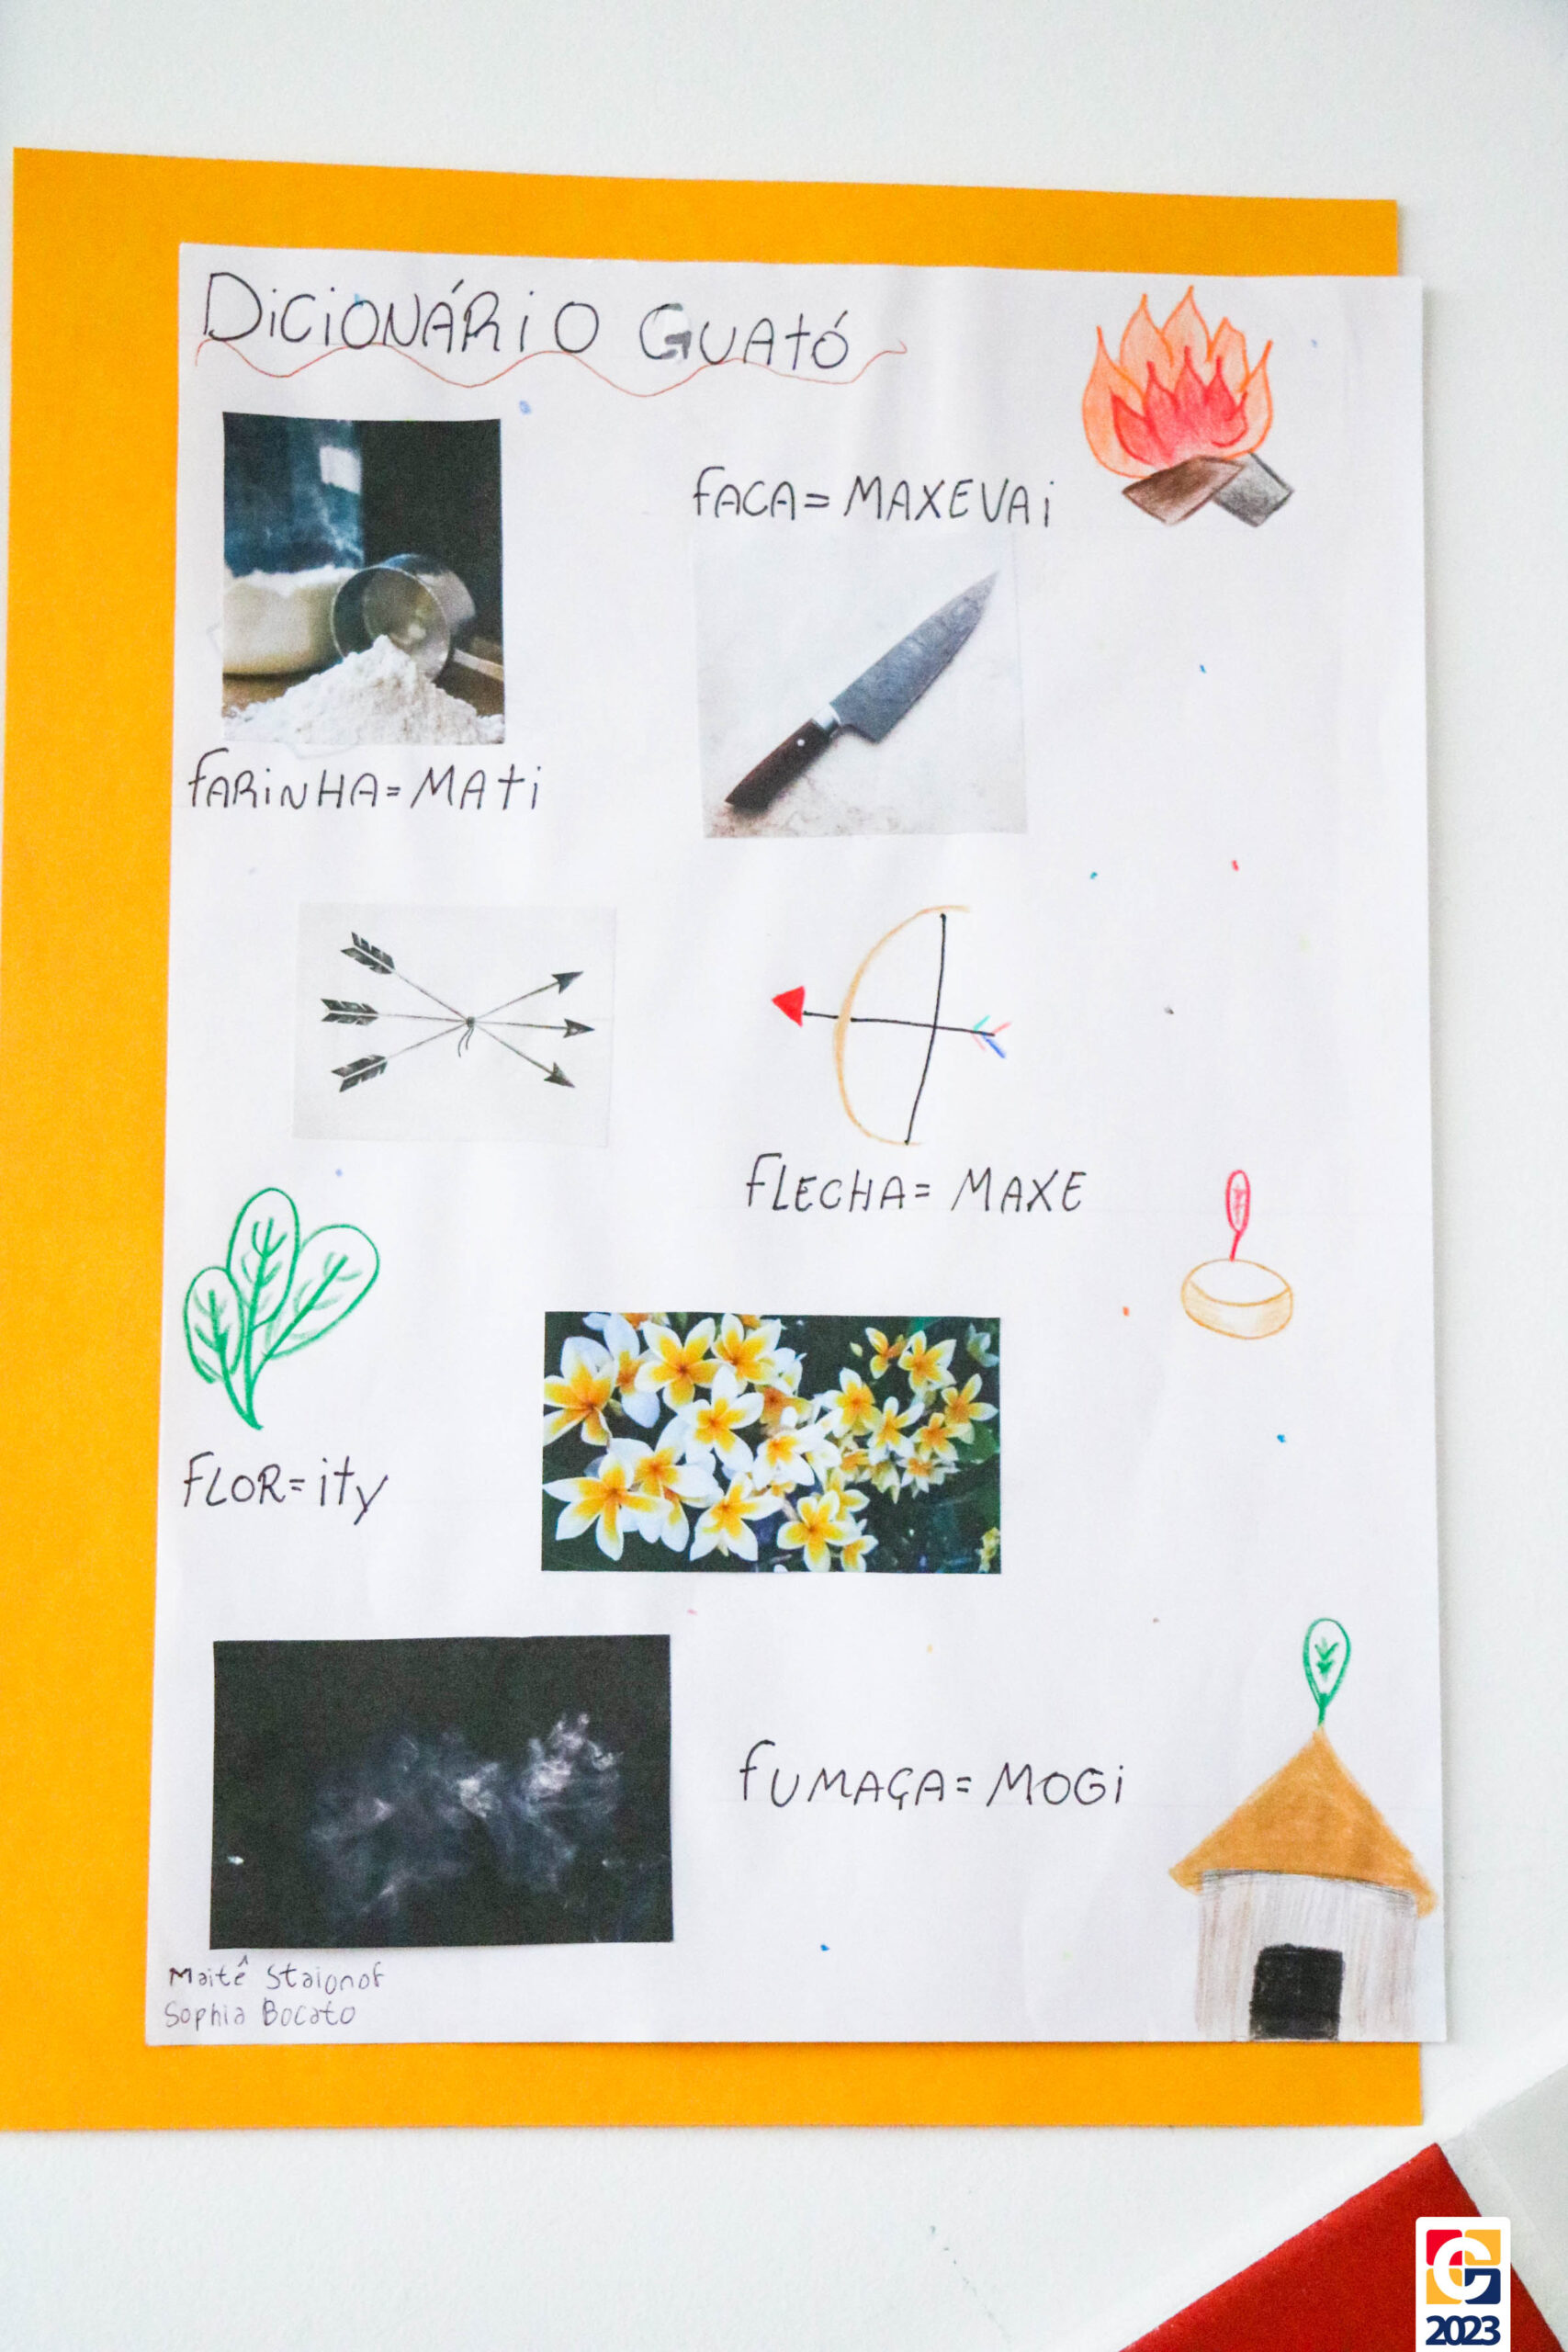 DiCiONÁRiO GUAtÓ
fACA= MAXEVAi
fARiNHA= MAti
fLECHA= MAXE
fLOR= ity
fUMAÇA= MOGi
Maitê Staionof
Sophia Bocato
2023